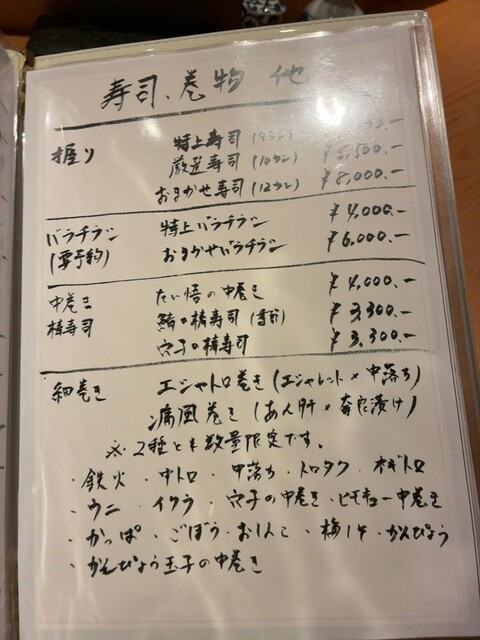 寿司、巻物 他
握り 特上寿司 (9カン)
厳選寿司 (10カン) ¥5,500.-
おまかせ寿司 (12カン) ¥8,000.-
バラチラシ 特上バラチラシ ¥4,000.-
(要予約) おまかせバラチラシ ¥6,000.-
中巻き たい悟の中巻き ¥4,000.-
棒寿司 鯖の棒寿司 ¥3,300.-
穴子の棒寿司 ¥3,300.-
細巻き エシャトロ巻き (エシャレット×中落ち)
痛風巻き (あん肝×奈良漬け)
※2種とも数量限定です。
・鉄火 ・中トロ ・中落ち ・トロタク ・ネギトロ
・ウニ ・イクラ ・穴子の中巻き ・ヒモキュー中巻き
・かっぱ ・ごぼう ・おしんこ ・梅しそ ・かんぴょう
・かんぴょう玉子の中巻き